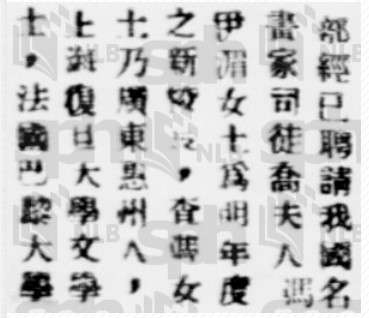 部經已聘請我國名
畫家司徒喬夫人馮
伊湄女士爲明年度
之新校長,查馮女
士乃廣東惠州人,
上海復旦大學文學
士,法國巴黎大學